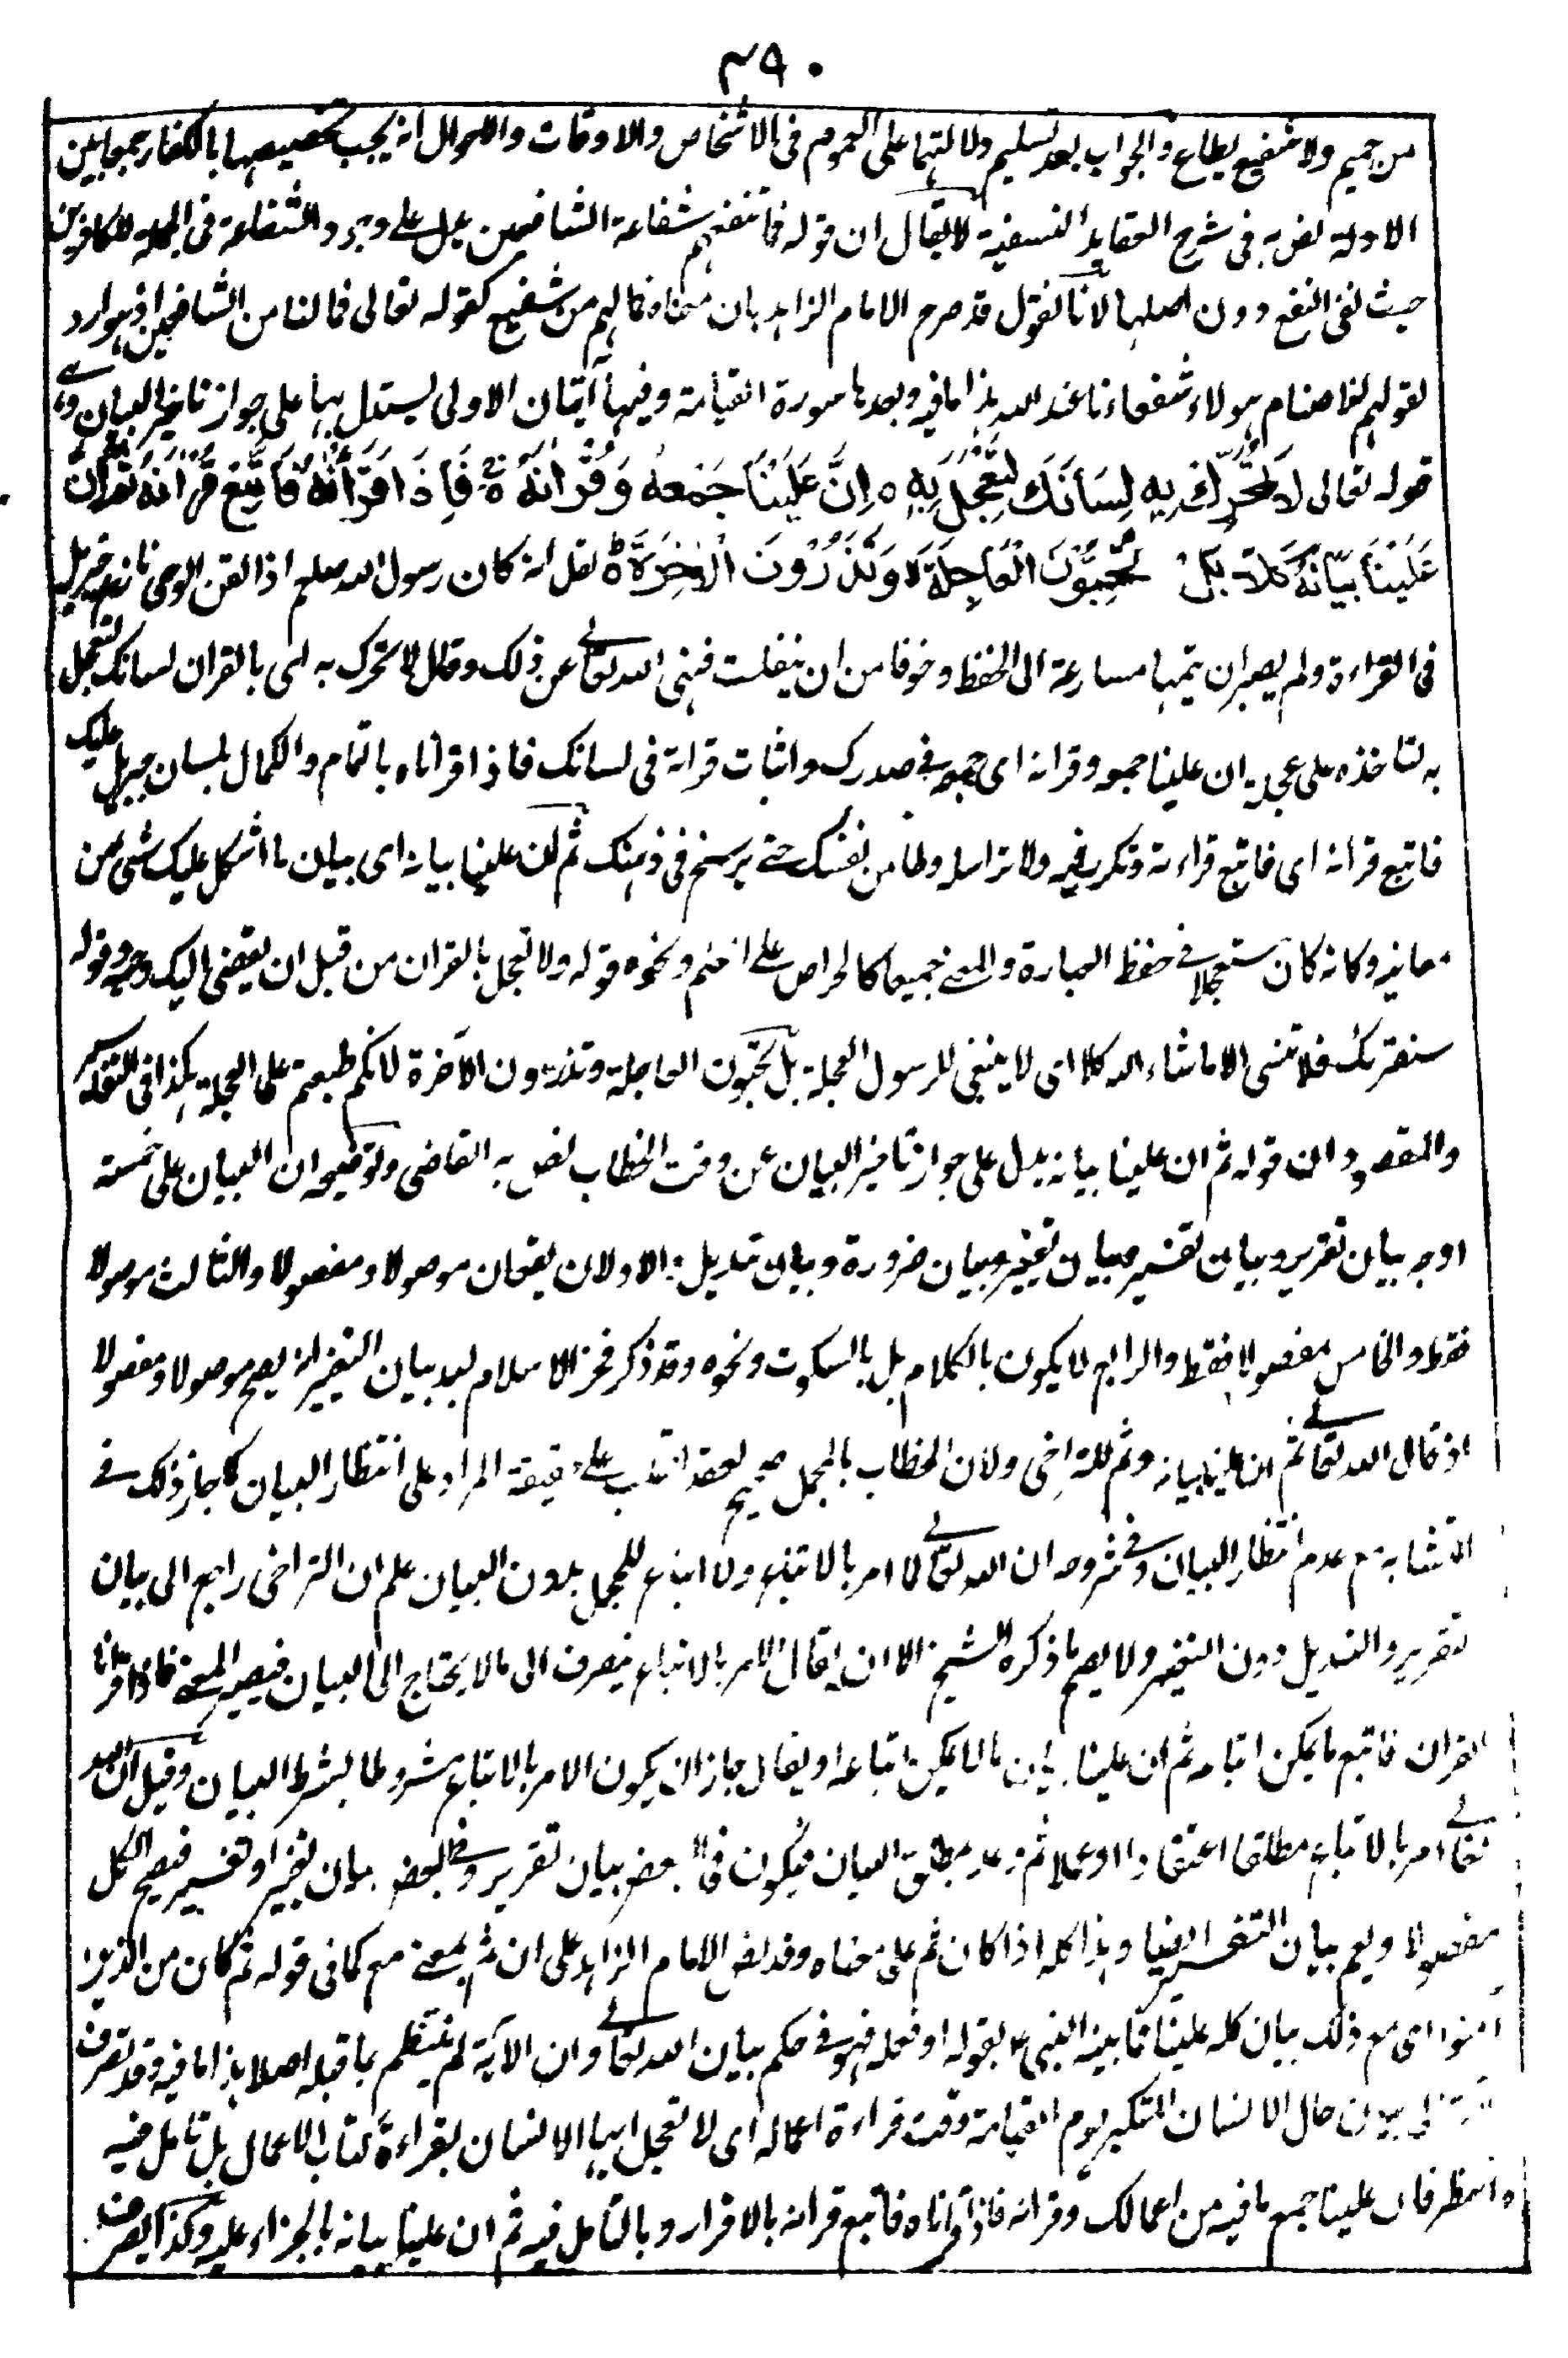 ٧٩٠
من حميم ولا شفيع يطاع والجواب بعد تسليم دلالتها على العموم فى الاشخاص والاوقات والاحوال انه يجب تخصيصها بالكفار جمعا بين
الادلة نص به فى شرح العقايد النسفية لا يقال ان قوله فما تنفعهم شفاعة الشافعين يدل على وجود الشفاعة فى الجملة للكافرين
حيث نفى النفع دون اصلها لانا نقول قد صرح الامام الزاهد بان معناه فما لهم من شفيع كقوله تعالى فما لنا من الشافعين اذ هو ارد
لقولهم لاصنام هولاء شفعاءنا عند الله هذا ما فيه وبعدها سورة القيامة وفيها آيتان الاولى يستدل بها على جواز تاخير البيان وهى
قوله تعالى لَا تُحَرِّكْ بِهٖ لِسَانَكَ لِتَعْجَلَ بِهٖ ٥ اِنَّ عَلَيْنَا جَمْعَهٗ وَقُرْاٰنَهٗ ٥ فَاِذَا قَرَاْنٰهُ فَاتَّبِعْ قُرْاٰنَهٗ ثُمَّ اِنَّ
عَلَيْنَا بَيَانَهٗ كَلَّا بَلْ تُحِبُّوْنَ الْعَاجِلَةَ وَتَذَرُوْنَ الْاٰخِرَةَ ٥ نقل انه كان رسول الله صلعم اذا لقن الوحى نازع جبريل
فى القراءة ولم يصبر ان يتمها مسارعة الى الحفظ وخوفا من ان ينفلت فنهى الله تعالى عن ذلك وقال لا تحرك به اى بالقران لسانك لتعجل
به لتاخذه على عجلة ان علينا جمعه وقرانه اى جمعه فى صدرك واثبات قرانه فى لسانك فاذا قراناه بالتمام والكمال بلسان جبريل عليك
فاتبع قرانه اى فاتبع قراءته وتكرر فيه ولا تراسله وطامن نفسك حتى يرسخ فى ذهنك ثم ان علينا بيانه اى بيان ما اشكل عليك شئ من
معانيه وكانه كان مستعجلا فى حفظ العبارة والمعنى جميعا كالحراص على العلم ونحوه قوله ولا تعجل بالقران من قبل ان يقضى اليك وحيه وقوله
سنقرئك فلا تنسى الا ما شاء الله كلا اى لا ينبغى للرسول العجلة بل تحبون العاجلة وتذرون الآخرة لانكم طبعتم على العجلة هكذا فى التفاسير
والمقصود ان قوله ثم ان علينا بيانه يدل على جواز تاخير البيان عن وقت الخطاب نص به القاضى وتوضيحه ان البيان على خمسة
اوجه بيان تقرير وبيان تفسير وبيان تغيير وبيان ضرورة وبيان تبديل فالاولان يقعان موصولا ومفصولا والثالث موصولا
فقط والخامس مفصولا فقط والرابع لا يكون بالكلام بل بالسكوت ونحوه وقد ذكر فخر الاسلام بعد بيان التغيير انه يصح موصولا ومفصولا
اذ قال الله تعالى ثم ان علينا بيانه وثم للتراخى ولان الخطاب بالمجمل صحيح لعقد القلب على حقيقة المراد على انتظار البيان كما جاز ذلك فى
المتشابه مع عدم انتظار البيان وفى شروحه ان الله تعالى لما امر بالاتباع ولا اتباع للمجمل بدون البيان علم ان التراخى راجع الى بيان
تقرير والتبديل دون التغيير ولا يصح ما ذكره الشيخ الا ان يقال الامر بالاتباع ينصرف الى ما لا يحتاج الى البيان فيصير المعنى فاذا قرانا
القران فاتبع ما يمكن اتباعه ثم ان علينا بيان ما لا يمكن اتباعه او يقال جاز ان يكون الامر بالاتباع مشروطا بشرط البيان وقيل ان الله
تعالى امر بالاتباع مطلقا اعتقادا او عملا ثم وعد مطلق البيان فيكون فى البعض بيان تقرير وفى البعض بيان تغيير او تفسير فيصح الكل
مفصولا ويعم بيان التفسير ايضا وهذا كله اذا كان ثم على معناه وقد نص الامام الزاهد على ان ثم بمعنى مع كما فى قوله ثم كان من الذين
آمنوا اى مع ذلك بيان كله علينا فما بينه النبى ع بقوله او فعله فهو فى حكم بيان الله تعالى وان الآية لم ينتظم بما قبله اصلا هذا ما فيه وقد تصرف
الى بيان حال الانسان المتكبر يوم القيامة وقت قراءة اعماله اى لا تعجل ايها الانسان بقراءة كتاب الاعمال بل تامل فيه
وانتظر فان علينا جمع ما فيه من اعمالك وقرانه فاذا قراناه فاتبع قرانه بالاقرار وبالتامل فيه ثم ان علينا بيانه بالجزاء عليه وكذا يصرف